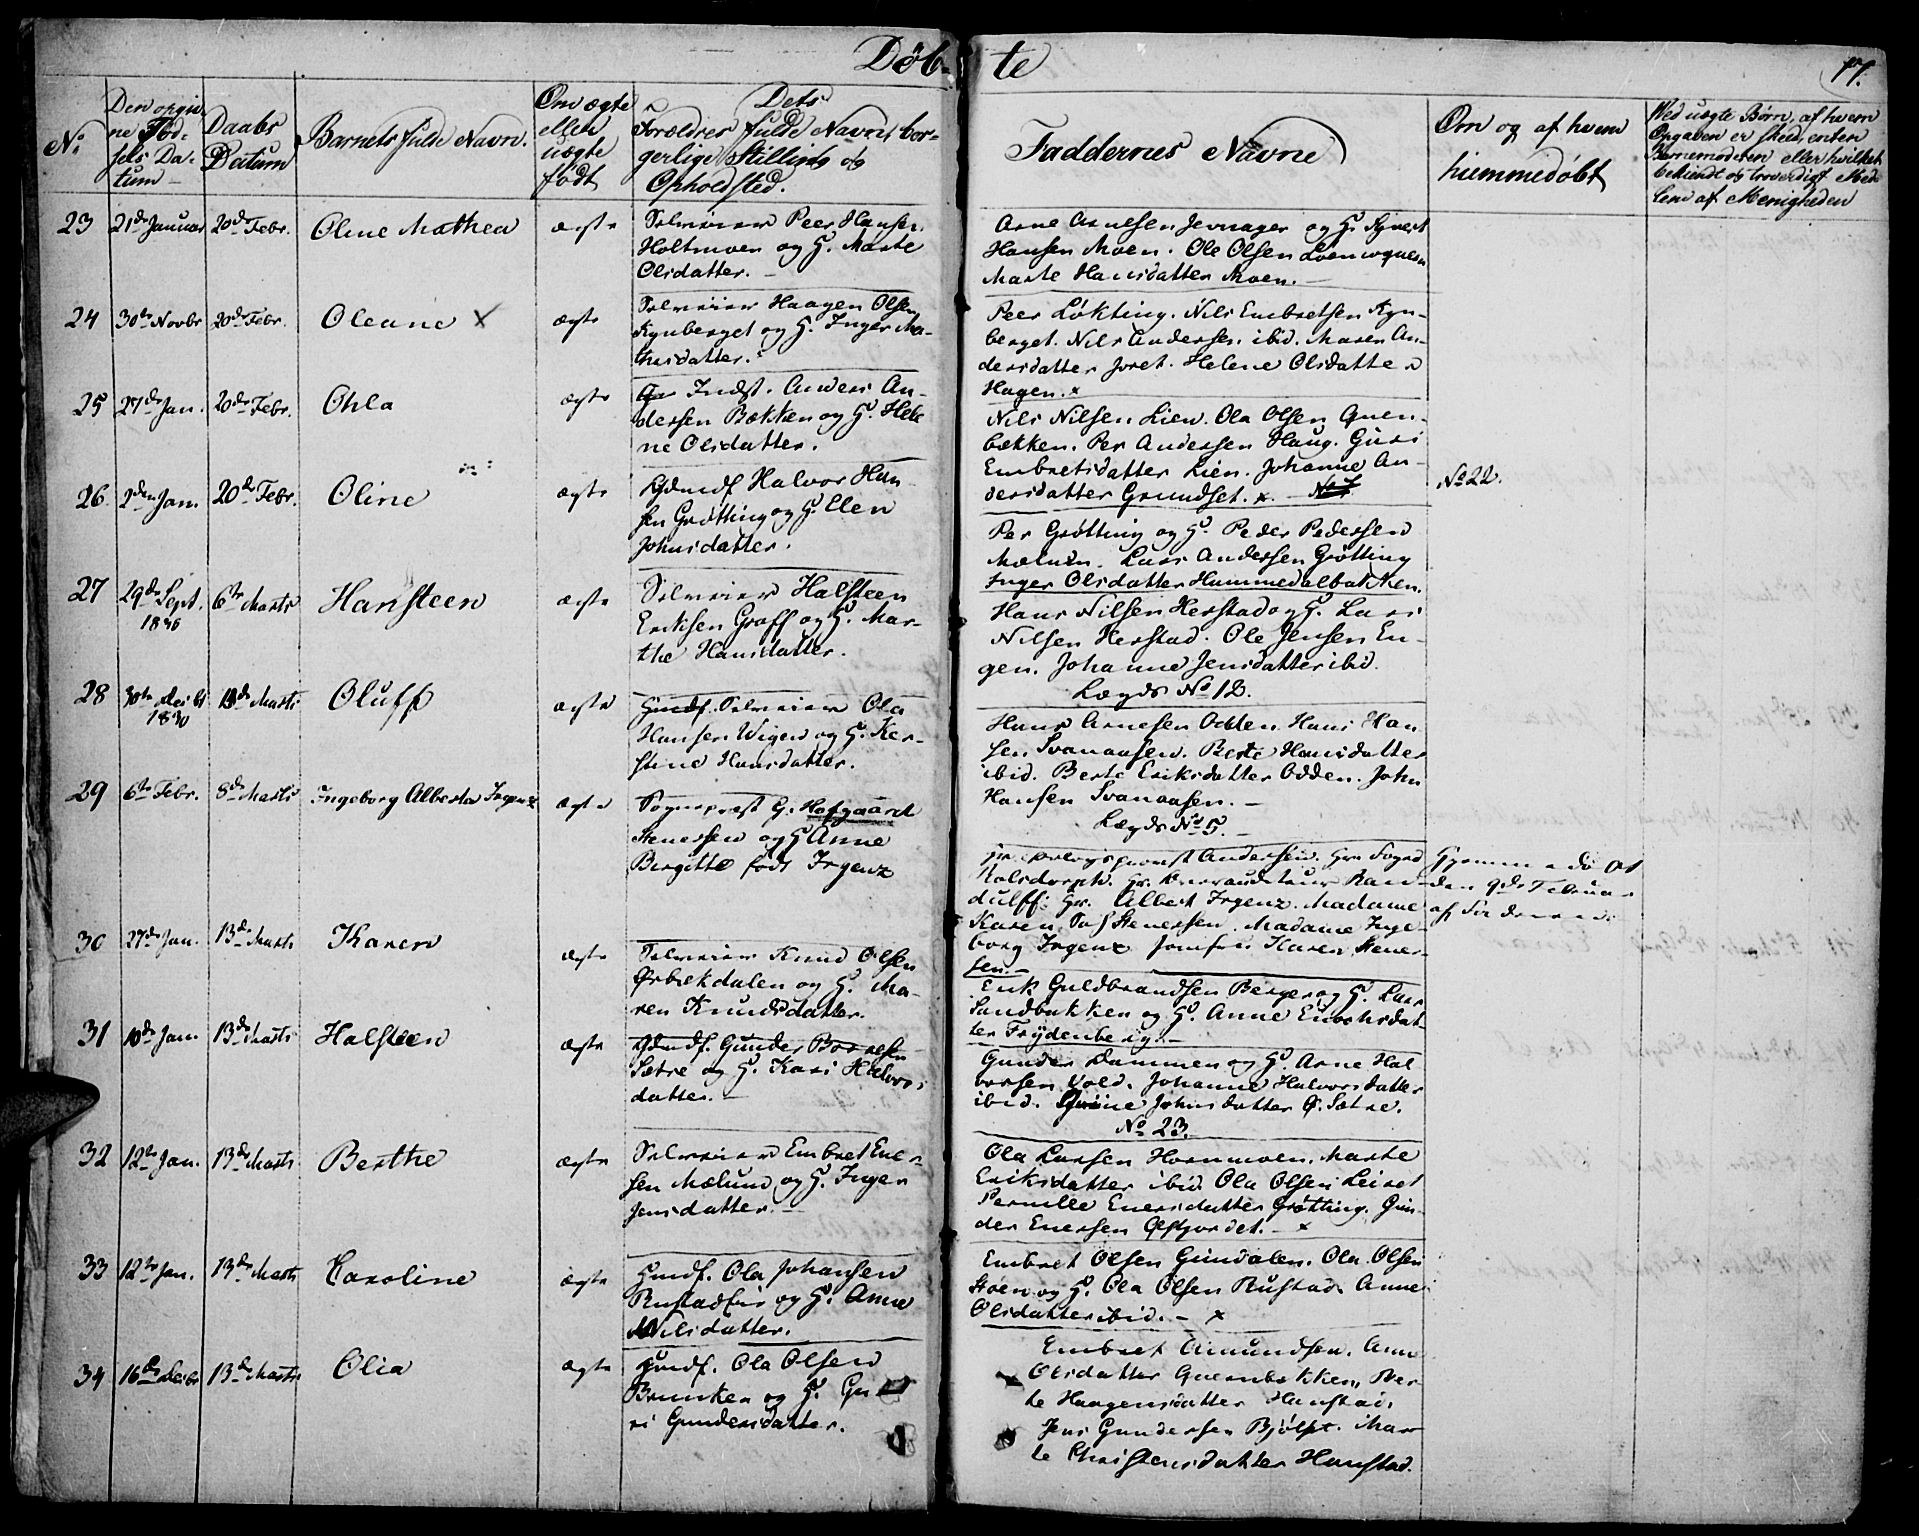 Døb- te
17.
No
Den opgiv-
ne Fød-
sels Da-
tum
Daabs
Datum
Barnets fulde Navn.
Om ægte
eller
uægte
født
Dets
Forældres fulde Navne bor-
gerlige Stilling og
Opholdsted.
Faddernes Navne
Om og af hvem
hiemmedøbt
Ved uægte Børn, af hvem
Opgaven er skeed, enten
Barnemoderen eller hvilket
bekiendt og troværdigt Med-
lem af Menigheden
23 21de Januar 20de Febr. Oline Mathea ægte
Selveier Peer Hansen
Holtmoen og H. Marte
Olsdatter.
Arne Arnesen Jevnager og H.
Hansen Moen. Ole Olsen
Marte Hansdatter Moen.
24 30te Novbr 20de Febr. Oleane x ægte
Selveier Haagen Olsen
Kynberget og H. Inger Ma-
thisdatter.
Peer Løkting. Nils Embretsen Kyn-
berget. Nils Andersen ibid. Maren An-
dersdatter Joret. Helene Olsdatter
Hagen. x
25 27de Jan. 20de Febr. Ohla ægte
Indst. Anders An-
dersen Bækken og H. Hele
ne Olsdatter.
Nils Nilsen Lien. Ola Olsen Quen-
bækken. Per Andersen Haug. Guri
Embretsdatter Lien. Johanne An-
dersdatter Grundset. x.
26. 2den Jan. 20de Febr. Oline ægte
Gdmdf Halvor Han
sen Grøtting og H. Elen
Johnsdatter.
Per Grøtting og H. Peder Pedersen
Mælum. Lars Andersen Grøtting
Inger Olsdatter Hummedalbakken.
No 22.
27 29de Sept. 1830 6te Marts Hansteen ægte
Selveier Halsteen
Eriksen Graff og H. Mar-
the Hansdatter.
Hans Nilsen Herstad og H. Lars
Nilsen Herstad. Ole Jensen En-
gen. Johanne Jensdatter ibid.
Lægds No 12.
28 30te Decbr 1830 13de Marts Oluff ægte
Selveier Ola
Hansen Wigen og H. Ker-
stine Hansdatter.
Hans Arnesen Odden. Hans Han
sen Svanaasen. Berte Hansdatter
ibid. Berte Eriksdatter Odden. John
Hansen Svanaasen.
Lægds No 5.
29 6te Febr. 8de Marts Ingeborg Alberta Irgenz ægte
Sognepræst G. Hofgaard
Stenersen og H Anne
Birgitte født Irgenz
Hr. Andersen. Hr. Foged
Rolsdorph. Hr. Overauditeur Ran-
dulff. Hr. Albert Irgenz. Madame
Karen Stenersen. Madame Inge-
borg Irgenz Jomfru Karen Stener-
sen.
Hjemmedøbt
den 9de Februar
af Faderen.
30 27de Jan. 13de Marts Karen ægte
Selveier Knud Olsen
Ørbækdalen og H. Ma-
ren Knudsdatter.
Erik Guldbrandsen Berger og H. Lars
Sandbakken og H. Anne Embretsdat-
ter Frydenberg.
31 10de Jan. 13de Marts Halsteen ægte
Gdmdf. Gunder
Sætre og H. Kari Halvors
datter.
Gunder Dammen og H. Arne Hal
vorsen Vold. Johanne Halvorsdatter
ibid. Johnsdatter Ø. Sætre.
No 23.
32 12te Jan. 13de Marts Berthe ægte
Selveier Embret Ener-
sen Mælum og H. Inger
Jensdatter.
Ola Larsen Hornmoen. Marte
Eriksdatter ibid. Ola Olsen Leiret
Pernille Enersdatter Grøtting. Gun-
der Enersen Øsfjordet. x
33 12te Jan. 13de Marts Karoline ægte
Hmdf. Ola Johansen
Rustadeie og H. Anne
Nilsdatter.
Embret Olsen Gundalen. Ola Olsen
Støen og H. Ola Olsen Rustad. Anne
Olsdatter ibid. x
34 16de Decbr 13de Marts Olia ægte
Hmdf. Ola Olsen
Brunken og H. Gu
ri Gundersdatter.
Embret Amundsen. Anne
Olsdatter Quernbækken. Ber-
te Haagensdatter Hanstad.
Jens Gundersen Bjølset. Mar
te Christensdatter Hanstad.